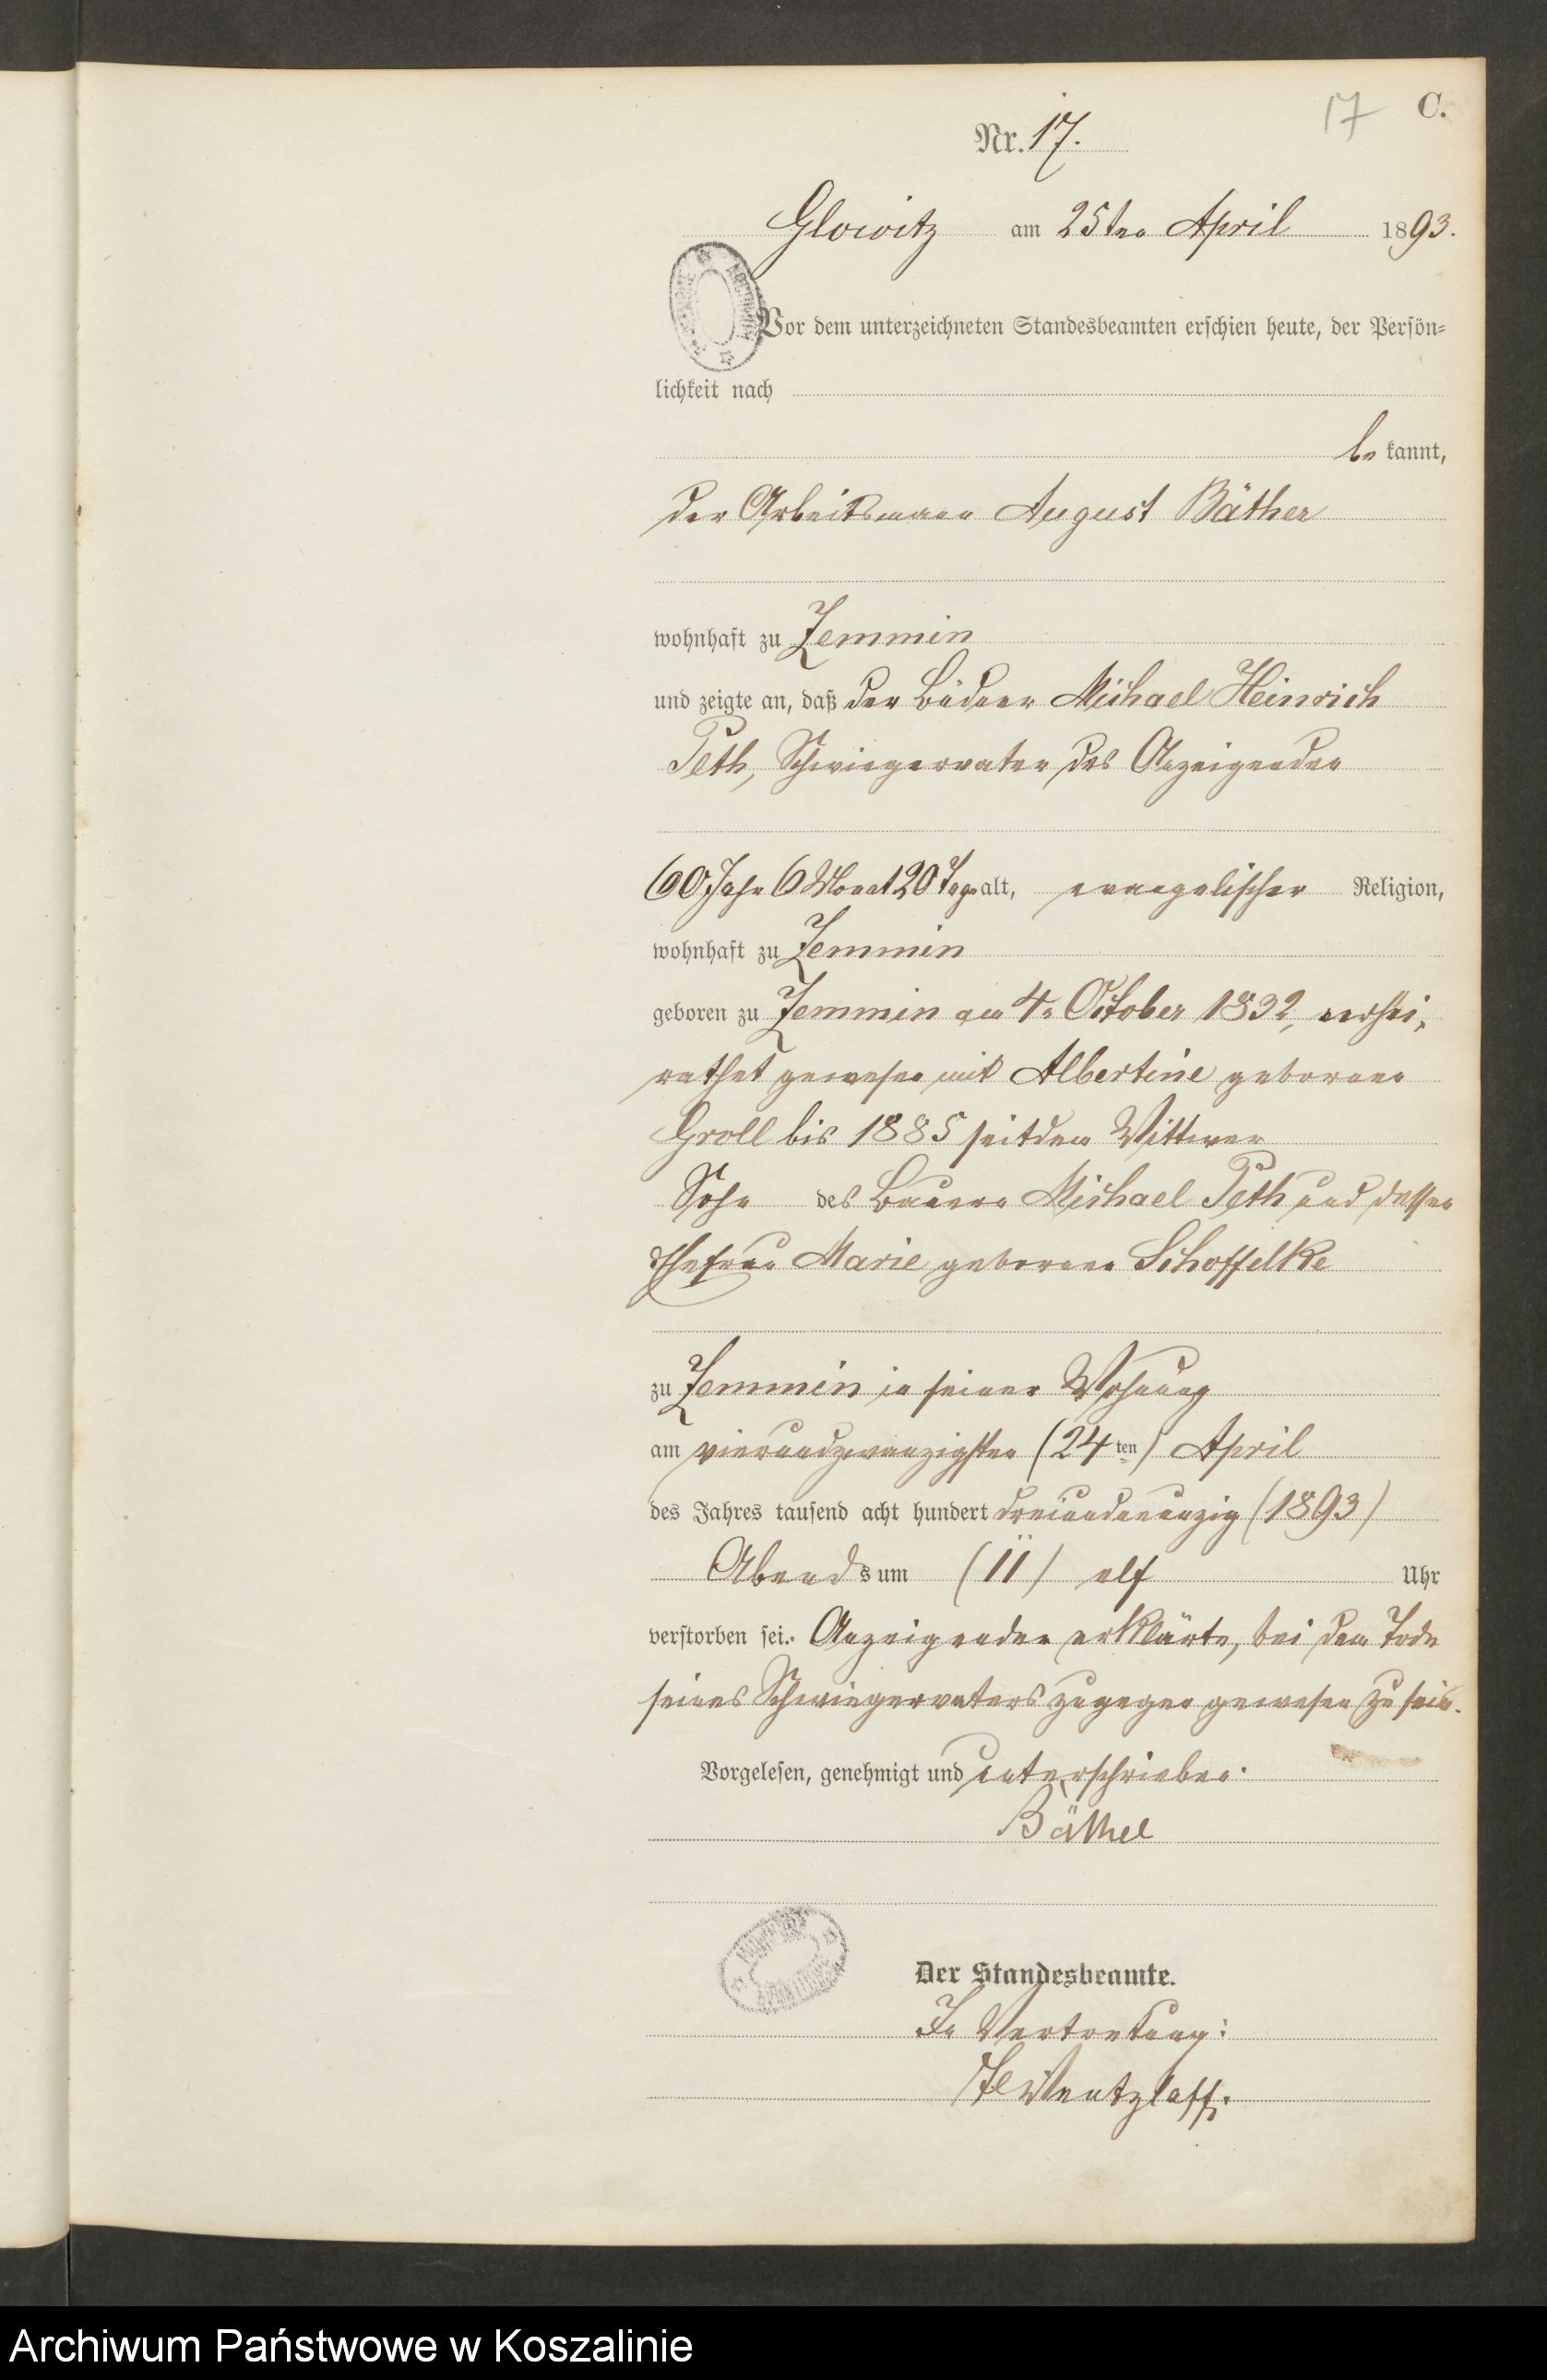 17 C.
Nr. 17.
Glowitz am 25ten April 1893.
Vor dem unterzeichneten Standesbeamten erschien heute, der Persön=
lichkeit nach
be kannt,
der Arbeitsmann August Bäther
wohnhaft zu Zemmin
und zeigte an, daß der Büdner Michael Heinrich
Peth, Schwiegervater des Anzeigenden
60 Jahr 6 Monat 20 Tage alt, evangelischer Religion,
wohnhaft zu Zemmin
geboren zu Zemmin am 4. October 1832, verhei,
rathet gewesen mit Albertine geborene
Groll bis 1885 seitdem Wittwer
Sohn des Bauern Michael Peth und dessen
Ehefrau Marie geborene Schoffelke
zu Zemmin in seiner Wohnung
am vierundzwanzigsten (24ten) April
des Jahres tausend acht hundert dreiundneunzig (1893)
Abends um (11) elf Uhr
verstorben sei. Anzeigender erklärte, bei dem Tode
seines Schwiegervaters zugegen gewesen zu sein.
Vorgelesen, genehmigt und unterschrieben.
Bäthel
Der Standesbeamte.
In Vertretung:
Wentzlaff.
Archiwum Państwowe w Koszalinie